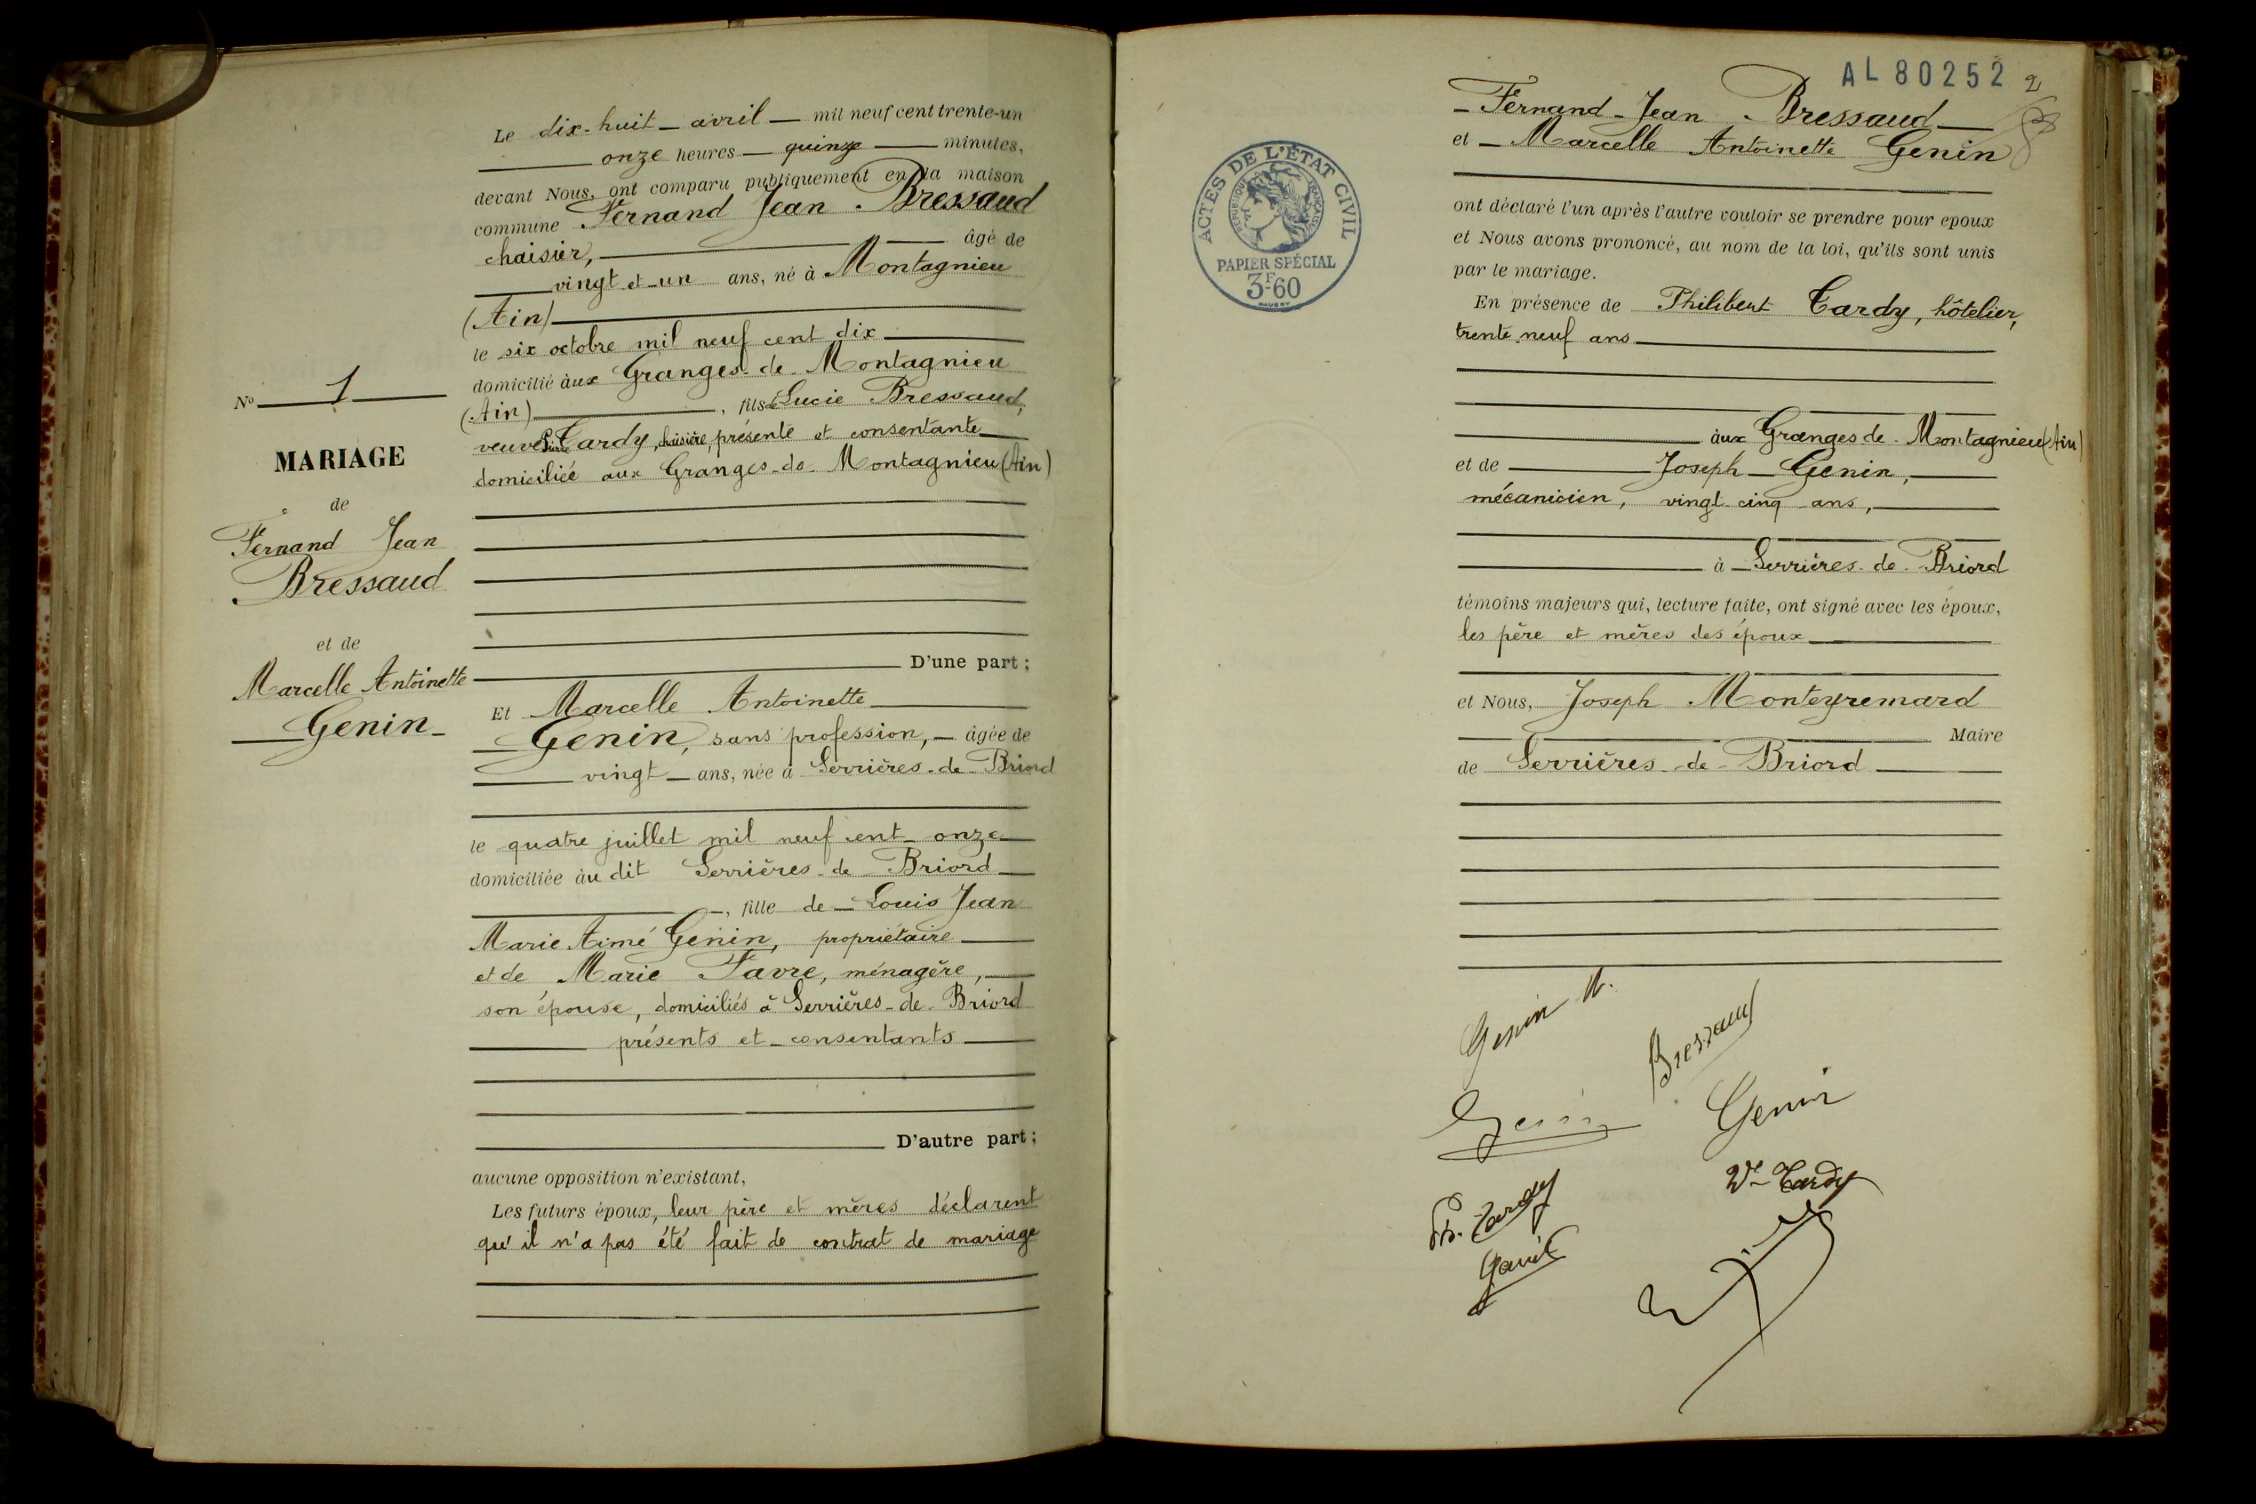 Le dix-huit avril mil neuf cent trente-un
onze heures quinze minutes,
devant Nous, ont comparu publiquement en la maison
commune Fernand Jean Bressaud
chaisier, âgé de
vingt-et-un ans, né à Montagnieu
(Ain)
le six octobre mil neuf cent dix
domicilié aux Granges-de-Montagnieu
(Ain), fils de Lucie Bressaud,
veuve Tardy, chaisière, présente et consentante
domiciliée aux Granges-de-Montagnieu (Ain)
D'une part;
Et Marcelle Antoinette
Genin, sans profession, âgée de
vingt ans, née à Serrières-de-Briord
le quatre juillet mil neuf cent onze
domiciliée au dit Serrières-de-Briord
, fille de Louis Jean
Marie Aimé Genin, propriétaire
et de Marie Favre, ménagère,
son épouse, domiciliés à Serrières-de-Briord
présents et consentants
D'autre part;
aucune opposition n'existant,
Les futurs époux, leur père et mères déclarent
qu'il n'a pas été fait de contrat de mariage
No 1
MARIAGE
de
Fernand Jean
Bressaud
et de
Marcelle Antoinette
Genin
AL 80252
2
Fernand-Jean Bressaud
et Marcelle Antoinette Genin
ACTES DE L'ÉTAT CIVIL
RÉPUBLIQUE FRANÇAISE
PAPIER SPÉCIAL
3F60
ont déclaré l'un après l'autre vouloir se prendre pour époux
et Nous avons prononcé, au nom de la loi, qu'ils sont unis
par le mariage.
En présence de Philibert Tardy, hôtelier,
trente-neuf ans
aux Granges-de-Montagnieu (Ain)
et de Joseph Genin,
mécanicien, vingt-cinq ans,
à Serrières-de-Briord
témoins majeurs qui, lecture faite, ont signé avec les époux,
les père et mères des époux
et Nous, Joseph Monteyremard
Maire
de Serrières-de-Briord
Genin M.
Bressaud
Genin
Genin
Ve Tardy
Ph. Tardy
Genin